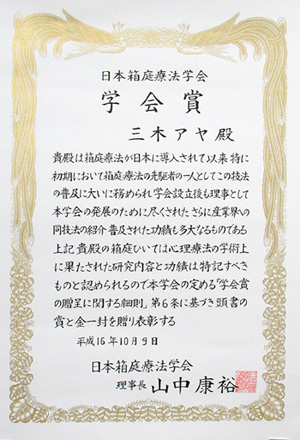 日本箱庭療法学会
学会賞
三木アヤ殿
貴殿は箱庭療法が日本に導入されて以来特に
初期において箱庭療法の先駆者の一人としてこの技法
の普及に大いに務められ学会設立後も理事として
本学会の発展のために尽くされたさらに産業界への
同技法の紹介普及された功績も多大なものである
上記貴殿の箱庭ひいては心理療法の学術上
に果たされた研究内容と功績は特記すべき
ものと認められるので本学会の定める「学会賞
の贈呈に関する細則」第6条に基づき頭書の
賞と金一封を贈り表彰する
平成16年10月9日
日本箱庭療法学会
理事長 山中康裕